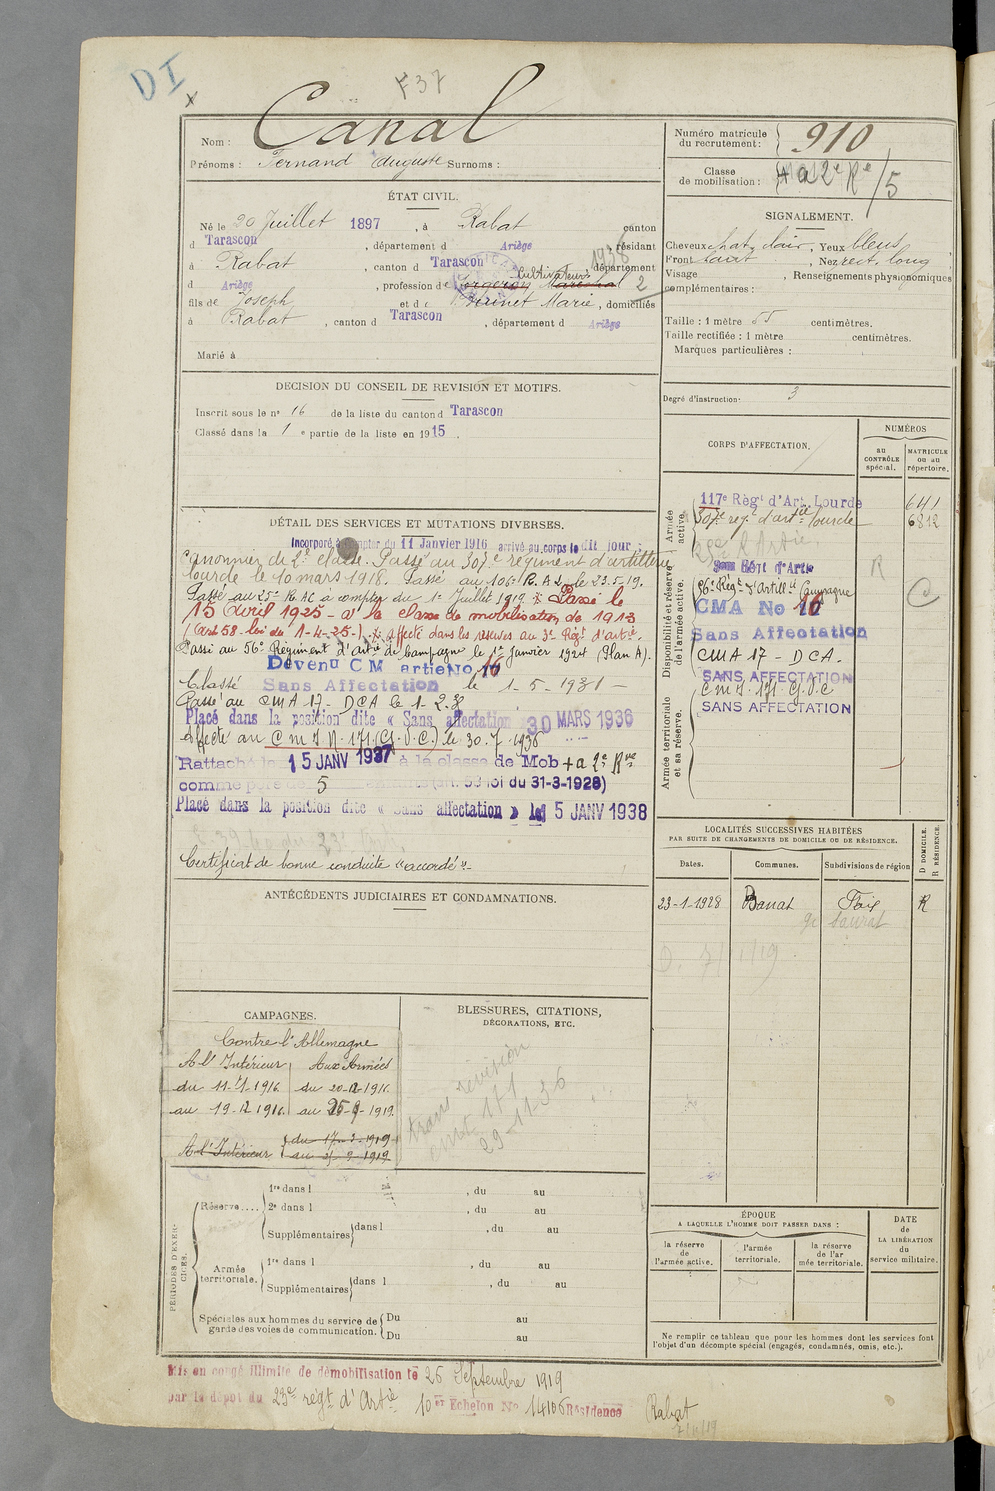 DI
F 37
x
Nom : Canal
Prénoms : Fernand Auguste Surnoms :
Numéro matricule du recrutement : 910
Classe de mobilisation : + a 2e Re /5
ÉTAT CIVIL.
Né le 20 Juillet 1897, à Rabat canton
d Tarascon, département d Ariège, résidant
à Rabat, canton d Tarascon département
d Ariège, profession de Forgeron Maréchal Cultivateur
1938
2
fils de Joseph et de Marie, domiciliés
à Rabat, canton d Tarascon, département d Ariège
Marié à
SIGNALEMENT.
Cheveux chat. clair, Yeux bleus
Front haut, Nez rect. long
Visage , Renseignements physionomiques
complémentaires :
Taille : 1 mètre 55 centimètres.
Taille rectifiée : 1 mètre centimètres.
Marques particulières :
Degré d'instruction : 3
DECISION DU CONSEIL DE REVISION ET MOTIFS.
Inscrit sous le n° 16 de la liste du canton d Tarascon
Classé dans la 1e partie de la liste en 1915.
DÉTAIL DES SERVICES ET MUTATIONS DIVERSES.
Incorporé à compter du 11 Janvier 1916 arrivé au corps le dit jour
Canonnier de 2e classe. Passé au 307e régiment d'artillerie
lourde le 10 mars 1918. Passé au 106e R.A.L. le 23.5.19.
Passé au 25e R.AC à compter du 1er Juillet 1919 x Passé le
15 Avril 1925 - à la classe de mobilisation de 1913
(Art 58 - loi du 1-4-25-) x affecté dans les réserves au 3e Régt d'artie.
Passé au 56e Régiment d'artie de Campagne le 1er Janvier 1924 (Plan A).
Devenu CM artie No 16
Classé Sans Affectation le 1-5-1931 -
Passé au CMA 17 - DCA le 1-2.38
Placé dans la position dite « Sans affectation » 30 MARS 1936
Affecté au C m I N° 171 (G.V.C.) le 30.7.1936
Rattaché le 15 JANV 1937 à la classe de Mob + a 2e Rve
comme père de 5 enfants (art. 58 loi du 31-3-1928)
Placé dans la position dite « Sans affectation » le 15 JANV 1938
Certificat de bonne conduite "accordé".-
ANTÉCÉDENTS JUDICIAIRES ET CONDAMNATIONS.
CORPS D'AFFECTATION.
NUMÉROS
au CONTRÔLE spécial.
MATRICULE ou au répertoire.
Armée active.
Disponibilité et réserve de l'armée active.
Armée territoriale et sa réserve.
117e Régt d'Art. Lourde 641
307e régt d'artie lourde 6812
3me Régt d'Artie
R
56e Régt d'Artillie Campagne
C
CMA No 16
Sans Affectation
CMA 17 - DCA.
SANS AFFECTATION
C m I. 171. G.V.C
SANS AFFECTATION
LOCALITÉS SUCCESSIVES HABITÉES
PAR SUITE DE CHANGEMENTS DE DOMICILE OU DE RÉSIDENCE.
D DOMICILE.
R RÉSIDENCE.
Dates. Communes. Subdivisions de région
23-1-1928 Banat Foix R
gie Saurat
CAMPAGNES.
Contre l'Allemagne
A l'Intérieur Aux Armées
du 11-1-1916. du 20-12-1916.
au 19-12-1916. au 25-9-1919.
A l'Intérieur du 17-3-1919
au 25-9-1919
BLESSURES, CITATIONS,
DÉCORATIONS, ETC.
trans révision
171
29-11-36
PÉRIODES D'EXERCICES.
Réserve.... 1re dans l , du au
2e dans l , du au
Supplémentaires dans l , du au
Armée territoriale. 1re dans l , du au
Supplémentaires dans l , du au
Spéciales aux hommes du service de garde des voies de communication. Du au
Du au
ÉPOQUE
A LAQUELLE L'HOMME DOIT PASSER DANS :
la réserve de l'armée active.
l'armée territoriale.
la réserve de l'ar mée territoriale.
DATE de LA LIBÉRATION du service militaire.
Ne remplir ce tableau que pour les hommes dont les services font
l'objet d'un décompte spécial (engagés, condamnés, omis, etc.).
Mis en congé illimité de démobilisation le 26 Septembre 1919
par le dépôt du 23e régt d'Artie 10me Echelon No 14106 Résidence Rabat
7/11/19